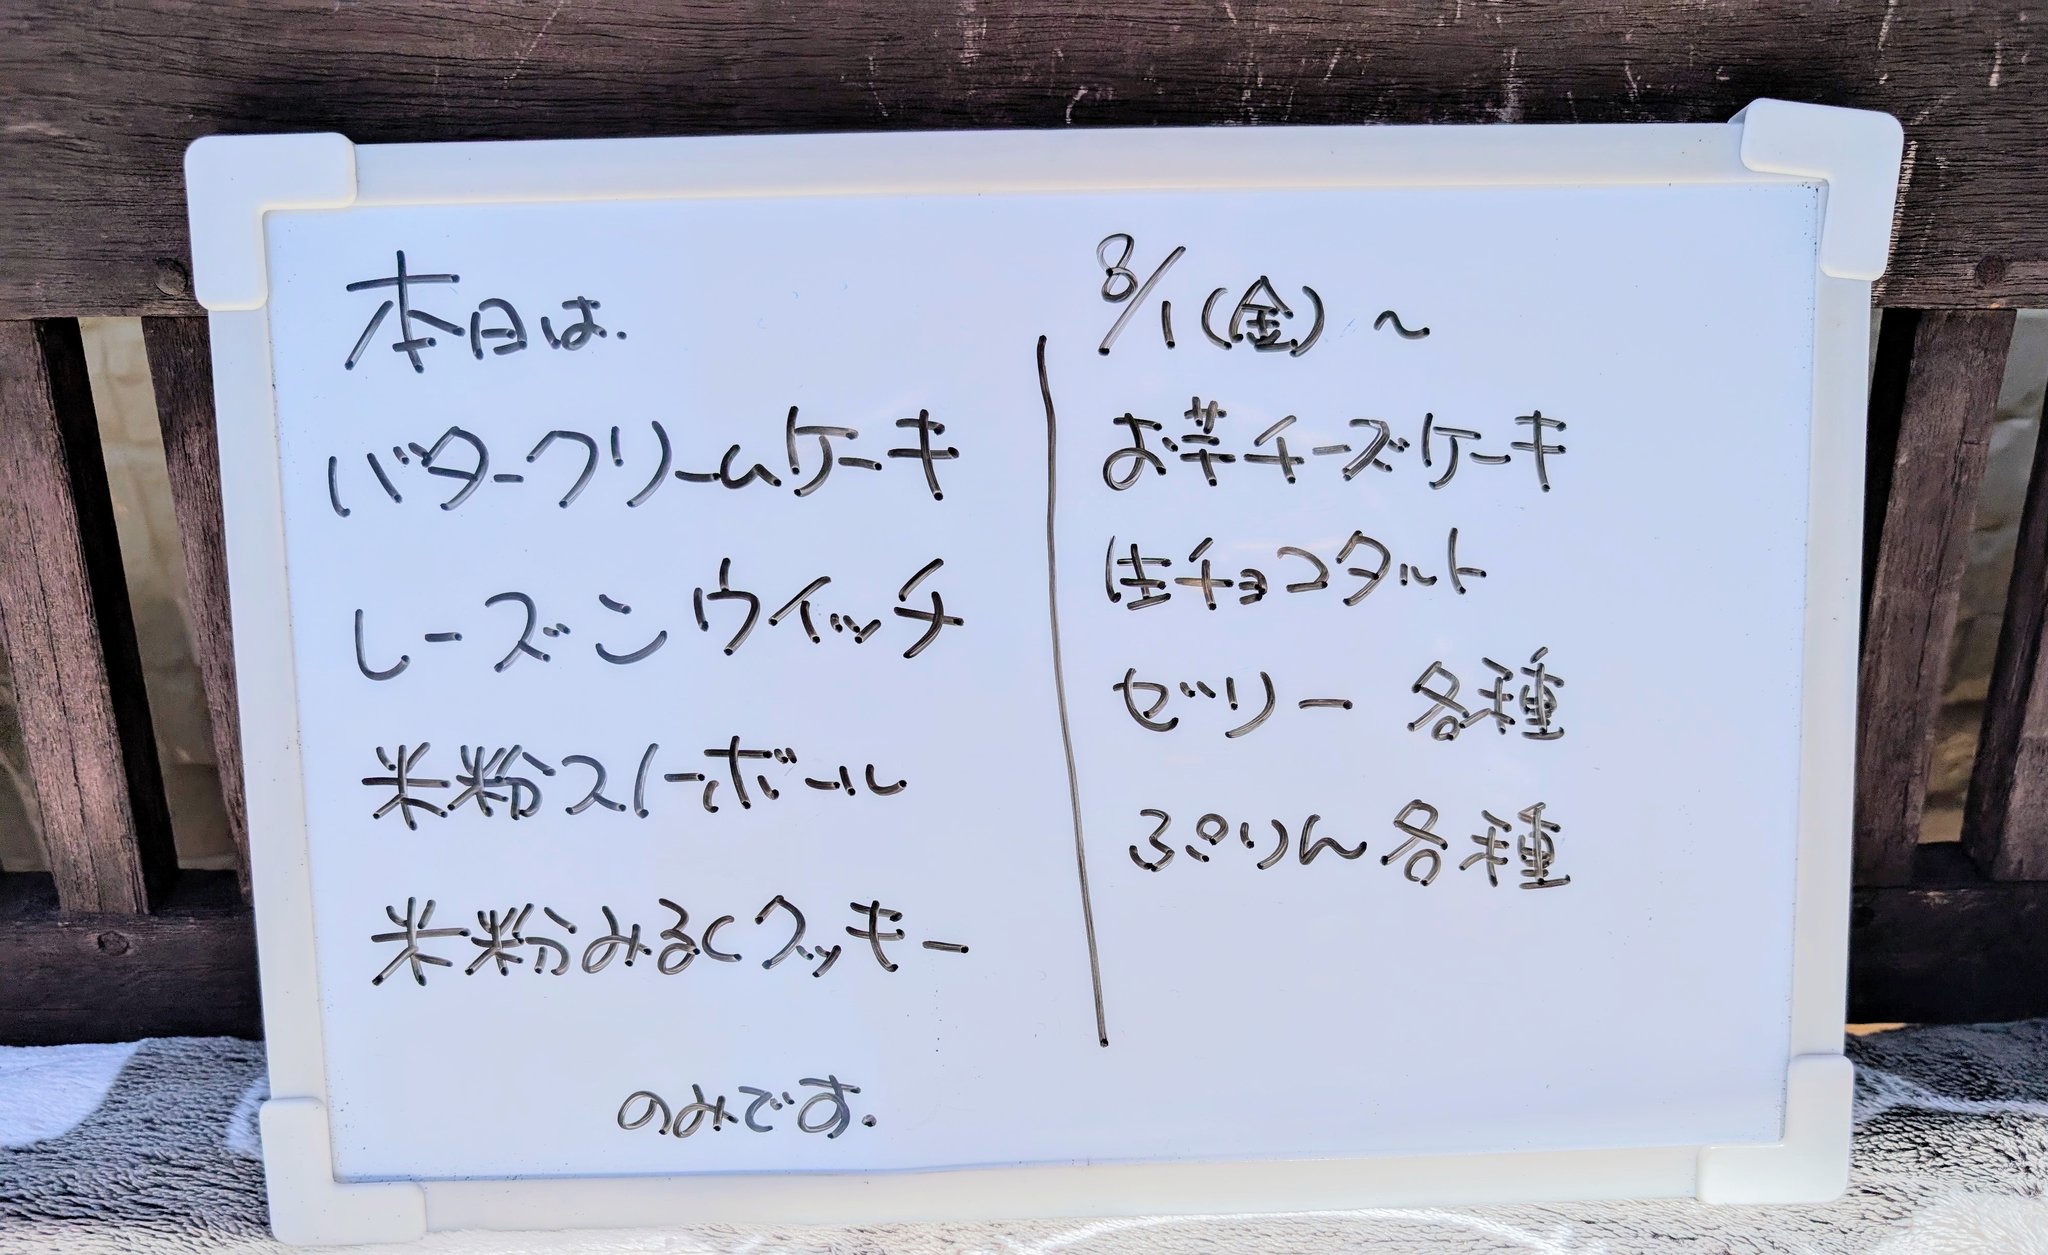 本日は.
バタークリームケーキ
レーズンウイッチ
米粉スノーボール
米粉みるくクッキー
のみです.
8/1(金)～
お芋チーズケーキ
生チョコタルト
ゼリー 各種
ぷりん各種